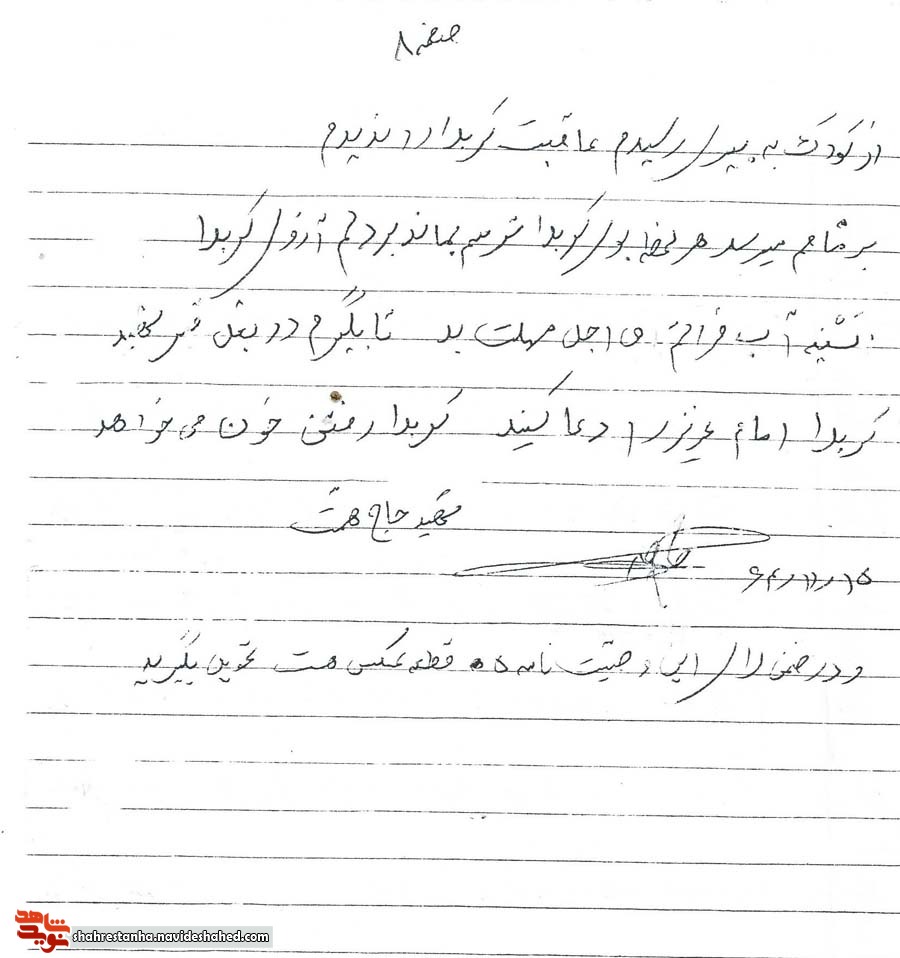 صفحه ۸
از کودک به پیری رسیدم عاقبت کربلا را ندیدم
بر مشامم میرسد هر لحظه بوی کربلا ترسم بماند بر دلم آرزوی کربلا
تشنه آب فراتم ای اجل مهلت بد تا بگیرم در بغل قبر شهید
کربلا امام عزیز را دعا کنید کربلا رفتن خون می خواهد
شهید حاج همت
۶۴/۱۱/۱۵
و در ضمن لای این وصیت نامه ۵ قطعه عکس هست تحویل بگیرید
شاهد
نوید
shahrestanha.navideshahed.com